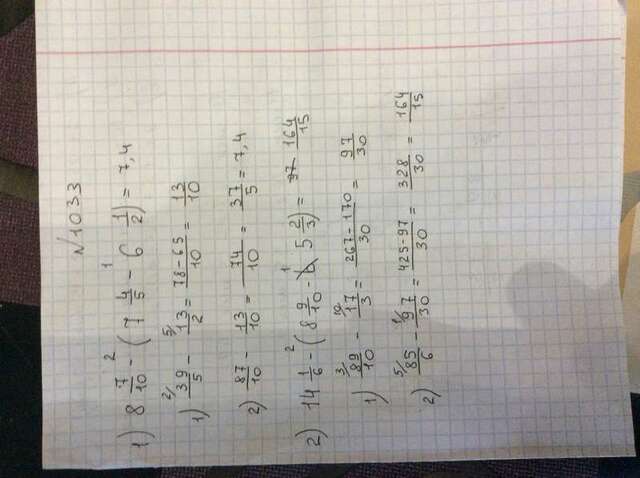 №1033
1) 8 7/10 - (7 4/5 - 6 1/2) = 7,4
1) 39/5 - 13/2 = 78-65/10 = 13/10
2) 87/10 - 13/10 = 74/10 = 37/5 = 7,4
2) 14 1/6 - (8 9/10 - 5 2/3) = 164/15
1) 89/10 - 17/3 = 267-170/30 = 97/30
2) 85/6 - 97/30 = 425-97/30 = 328/30 = 164/15